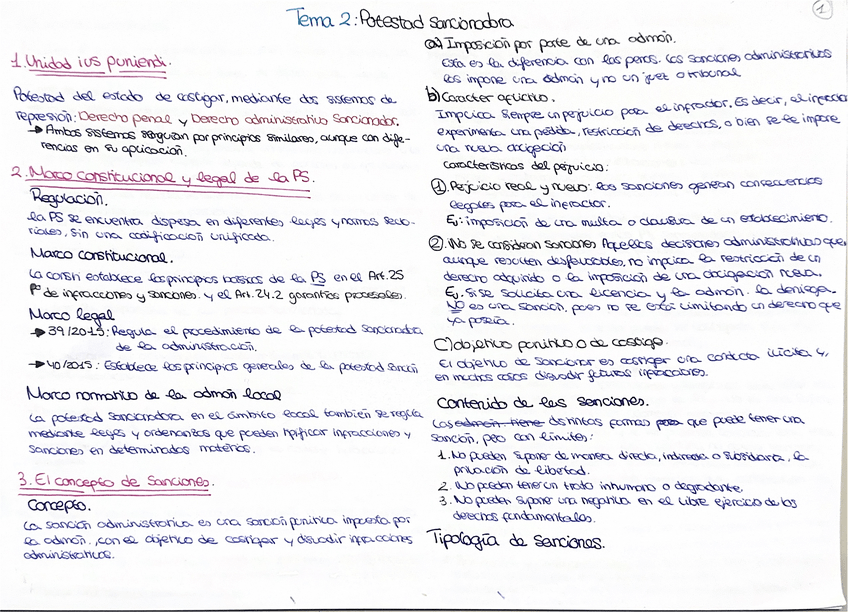 1
Tema 2: Potestad sancionadora
1. Unidad ius puniendi.
Potestad del estado de castigar, mediante dos sistemas de
represión: Derecho penal y Derecho administrativo Sancionador.
→ Ambos sistemas se guían por principios similares, aunque con dife-
rencias en su aplicación.
2. Marco constitucional y legal de la PS.
Regulación.
La PS se encuentra dispersa en diferentes leyes y normas secto-
riales, sin una codificación unificada.
Marco constitucional.
La consti establece los principios basicos de la PS en el Art. 25
Pº de infracciones y sanciones. y el Art. 24.2 garantías procesales.
Marco legal
→ 39/2015: Regula el procedimiento de la potestad sancionadora
de la administración.
→ 40/2015: Establece los principios generales de la potestad sanción
Marco normativo de la admón local
La potestad sancionadora en el ámbito local también se regula
mediante leyes y ordenanzas que pueden tipificar infracciones y
sanciones en determinadas materias.
3. El concepto de Sanciones.
Concepto.
La sanción administrativa es una sanción punitiva impuesta por
la admón., con el objetivo de castigar y disuadir infracciones
administrativas.
a) Imposición por parte de una admón.
Esta es la diferencia con las penas. Las sanciones administrativas
las impone una admón y no un juez o tribunal
b) Caracter aflictivo.
Implica siempre un perjuicio para el infractor. Es decir, el infractor
experimenta una pérdida, restricción de derechos, o bien se le impone
una nueva obligación
Características del perjuicio:
1. Perjuicio real y nuevo: las sanciones generan consecuencias
legales para el infractor.
Ej: imposición de una multa o clausura de un establecimiento.
2. No se consideran sanciones Aquellas decisiones administrativas que,
aunque resulten desfavorables, no implica la restricción de un
derecho adquirido o la imposición de una obligación nueva.
Ej. Si se solicita una licencia y la admón. la deniega.
NO es una sanción, pues no se está limitando un derecho que
ya poseía.
C) objetivo punitivo o de castigo.
El objetivo de sancionar es castigar una conducta ilícita y,
en muchos casos disuadir futuras infracciones.
Contenido de las sanciones.
Las admón tiene distintas formas para que puede tener una
sanción, pero con límites:
1. No pueden suponer de manera directa, indirecta o subsidiaria, la
privación de libertad.
2. No pueden tener un trato inhumano o degradante.
3. No pueden suponer una negativa en el libre ejercicio de los
derechos fundamentales.
Tipología de Sanciones.